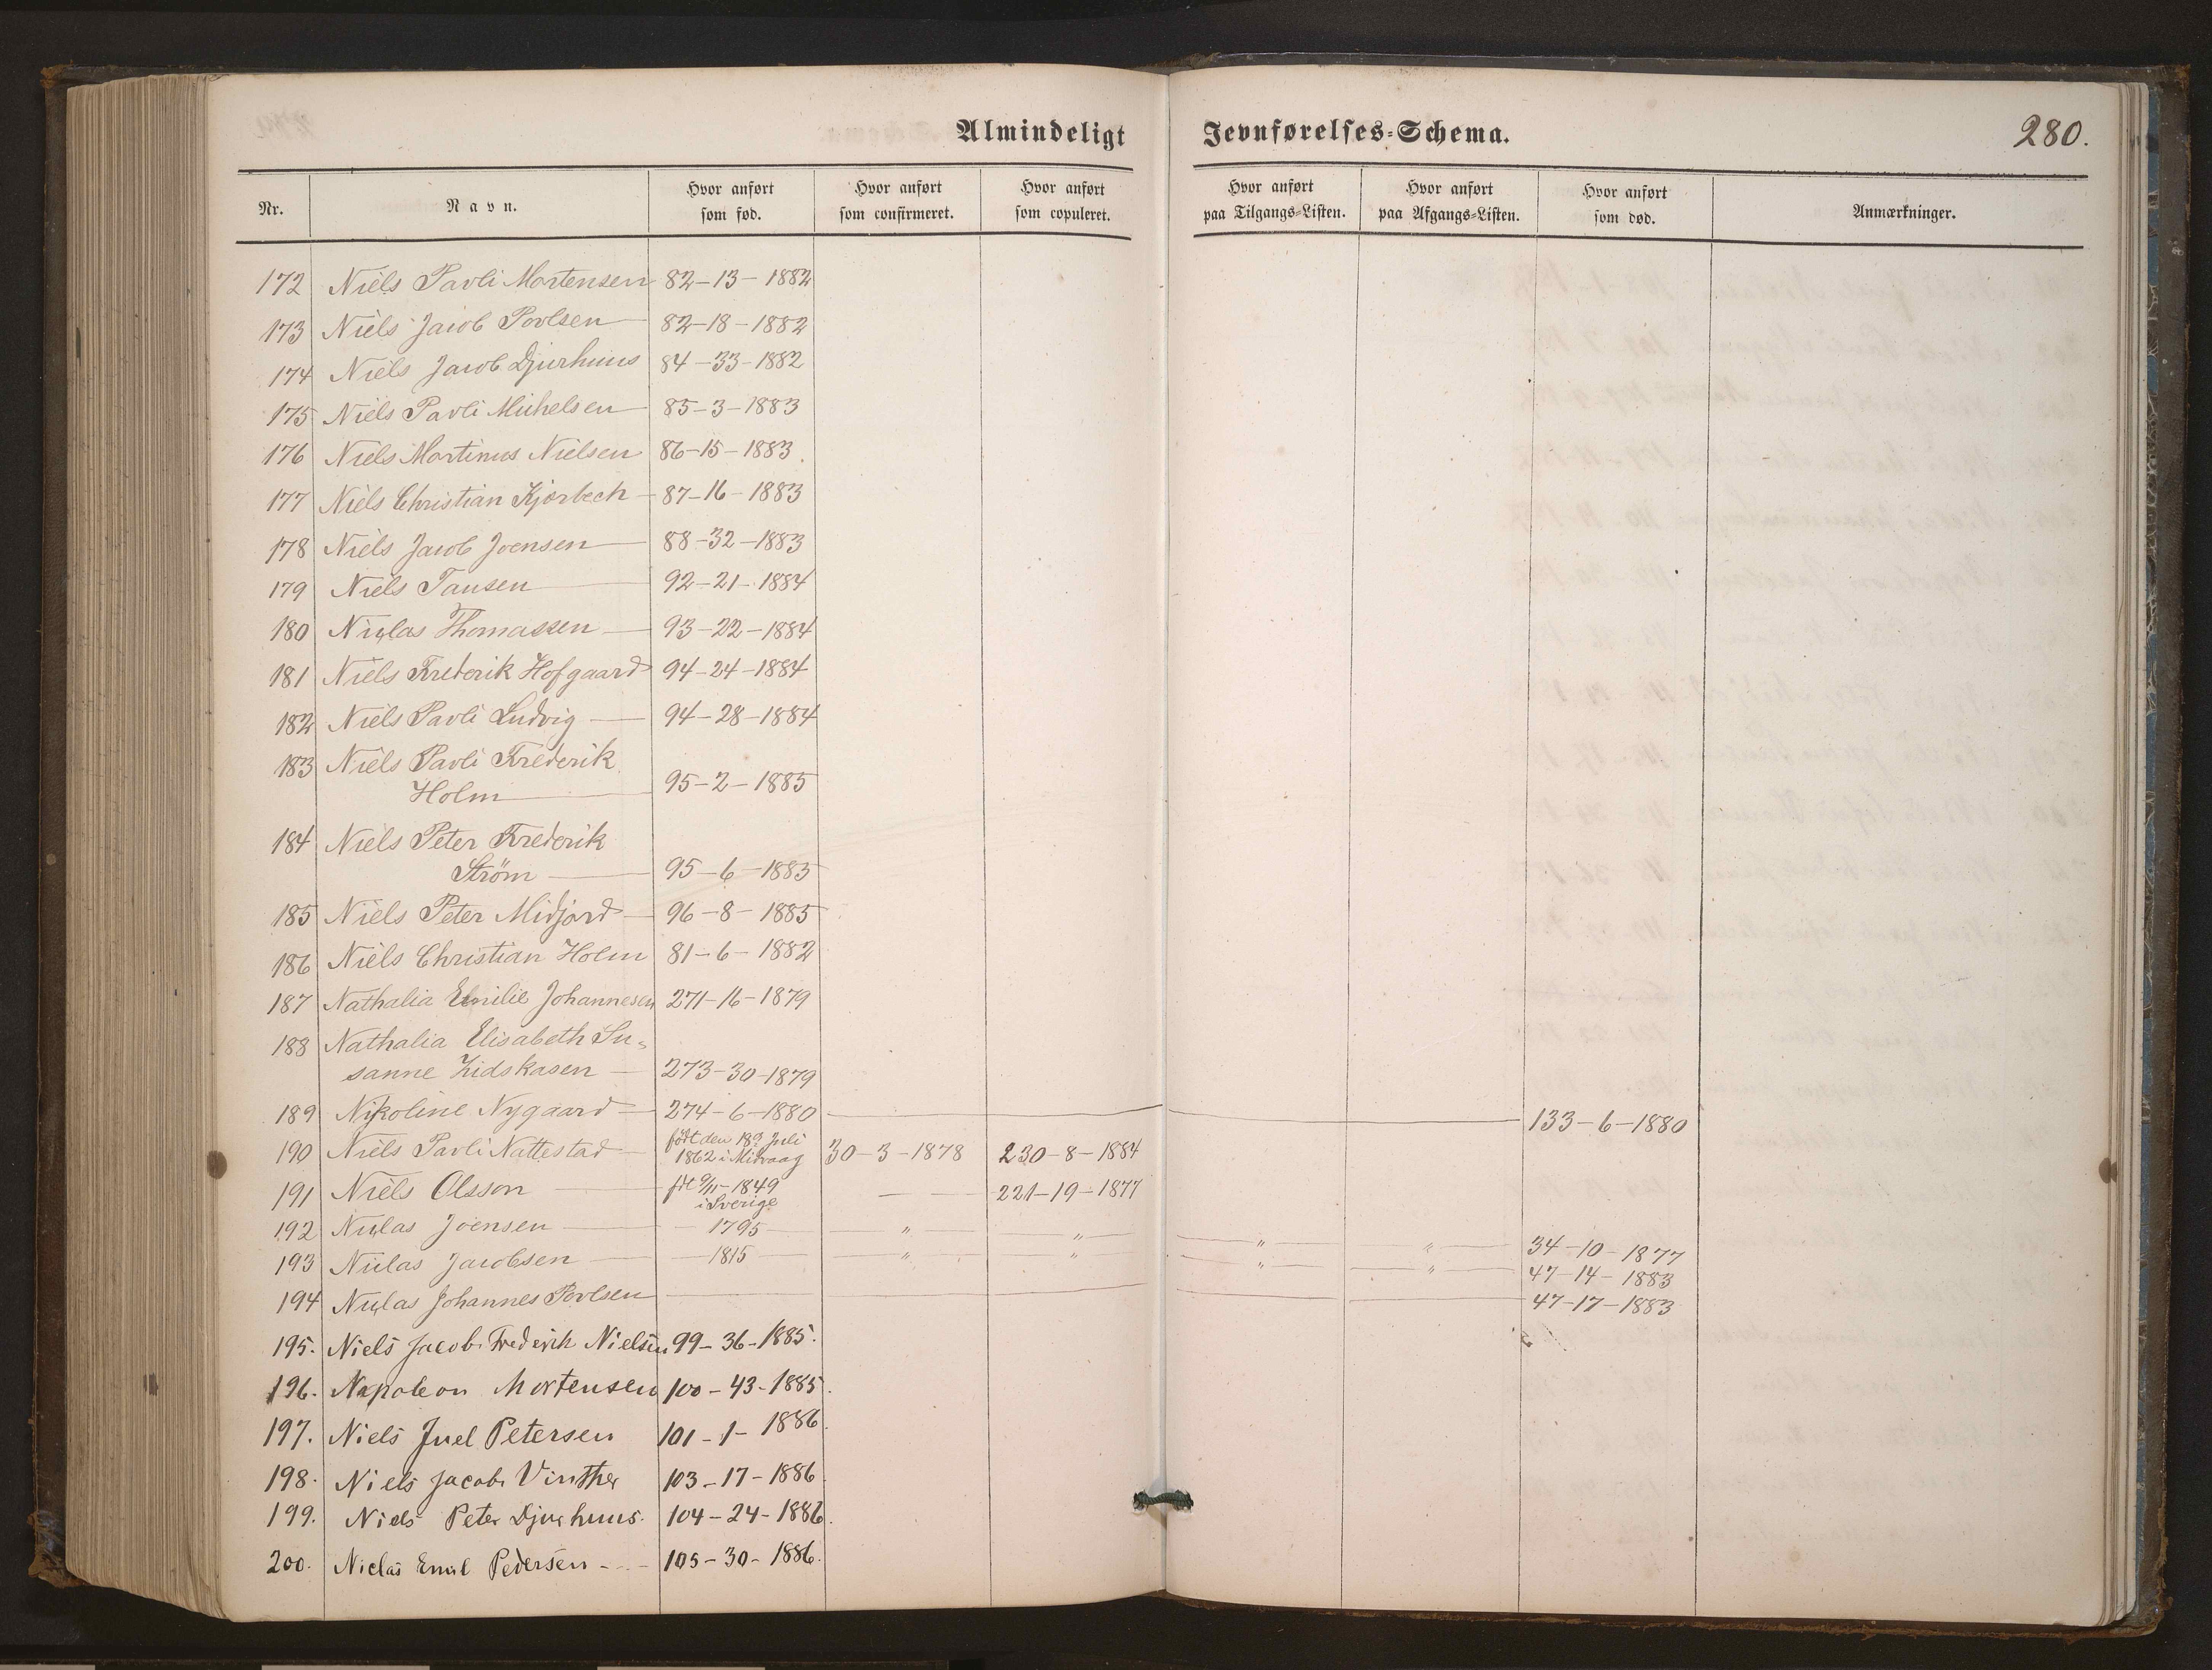 Almindeligt Jevnførelses-Schema. 280.
Nr. Navn. Hvor anført som fød. Hvor anført som confirmeret. Hvor anført som copuleret. Hvor anført paa Tilgangs-Listen. Hvor anført paa Afgangs-Listen. Hvor anført som død. Anmærkninger.
172 Niels Pavli Mortensen 82-13-1882
173 Niels Jacob Povlsen 82-18-1882
174 Niels Jacob Djurhuus 84-33-1882
175 Niels Pavli Michelsen 85-3-1883
176 Niels Martinus Nielsen 86-15-1883.
177 Niels Christian Kjærbech 87-16-1883
178 Niels Jacob Joensen 88-32-1883
179 Niels Tausen 92-21-1884
180 Niclas Thomassen 93-22-1884
181 Niels Frederik Hofgaard 94-24-1884
182 Niels Pavli Ludvig 94-28-1884
183 Niels Pavli Frederik
Holm 95-2-1885
184 Niels Peter Frederik
Ström 95-6-1885
185 Niels Peter Midjord 96-8-1885
186 Niels Christian Holm 81-6-1882
187 Nathalia Emilie Johannesen 271-16-1879
188 Nathalia Elisabeth Su-
sanne Zidskasen 273-30-1879
189 Nikoline Nygaard 274-6-1880 133-6-1880
190 Niels Pavli Nattestad født den 18d Juli
1862 i Midvaag 30-3-1878 230-8-1884
191 Niels Olsson fdt 9/11-1849
i Sverige 221-19-1877
192 Niclas Joensen 1795 " " " " 34-10-1877
193 Niclas Jacobsen 1815 " " " " 47-14-1883
194 Niclas Johannes Povlsen 47-17-1883
195. Niels Jacob Frederik Nielsen 99-36-1885.
196. Napoleon Mortensen 100-43-1885.
197. Niels Juel Petersen 101-1-1886.
198. Niels Jacob Vinther 103-17-1886
199. Niels Peter Djurhuus. 104-24-1886.
200. Niclas Emil Pedersen 105-30-1886.